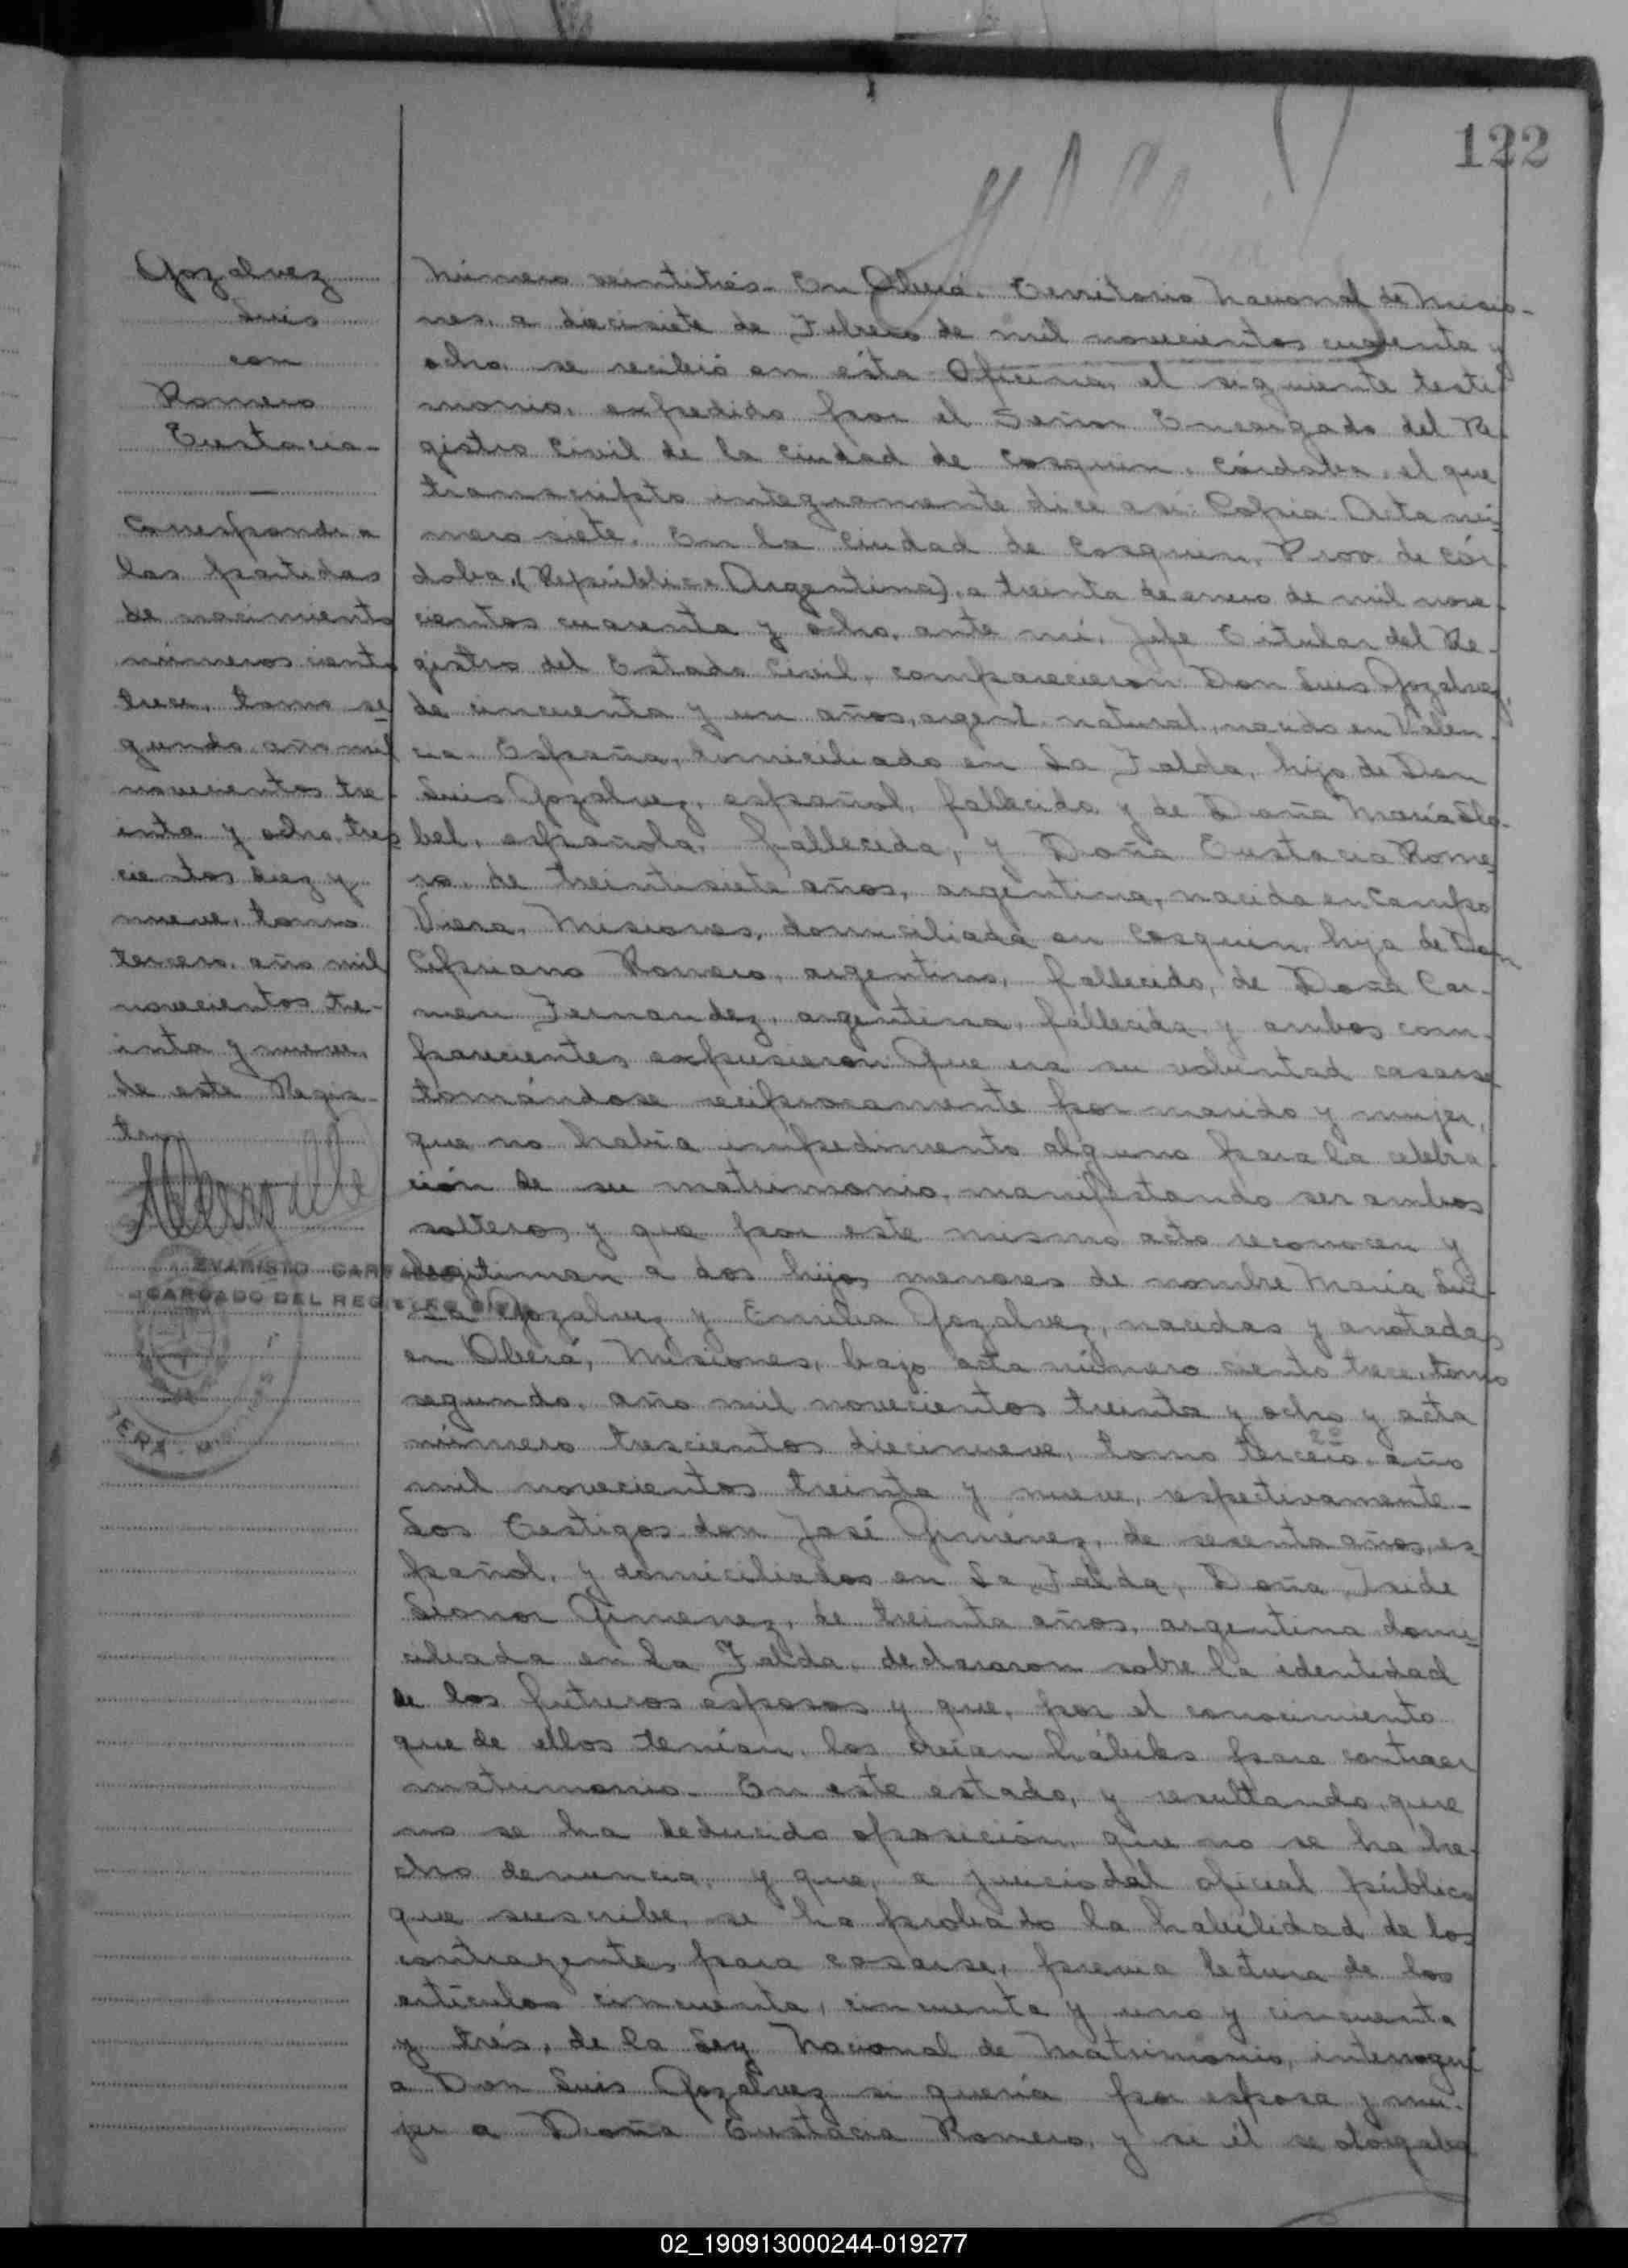 122
Gozalvez
Luis
con
Romero
Eustacia-
Corresponde a
las partidas
de nacimiento
números ciento
trece, tomo se-
gundo año mil
novecientos tre-
inta y ocho, tres
cientos diez y
nueve, tomo
tercero, año mil
novecientos tre-
inta y nueve,
de este Regis-
tro
EVARISTO
CARGADO DEL REGISTRO CIVIL
Número veintitrés- En Oberá, Territorio Nacional de Misio-
nes, a diecisiete de Febrero de mil novecientos cuarenta y
ocho, se recibió en ésta Oficina, el siguiente testi
monio, expedido por el Señor Encargado del Re-
gistro Civil de la ciudad de Cosquin, Córdoba, el que
transcripto integramente dice así: Copia: Acta nú-
mero siete. En la ciudad de Cosquin, Prov. de Cór-
doba, (República Argentina), a treinta de enero de mil nove-
cientos cuarenta y ocho, ante mí, Jefe Titular del Re-
gistro del Estado Civil, comparecieron Don Luis Gozalvez,
de cincuenta y un años, argent. natural, nacido en Valen-
cia España, domiciliado en La Falda, hijo de Don
Luis Gozalvez, español, fallecido y de Doña María
bel, española, fallecida, y Doña Eustacia Rome-
ro, de treintisiete años, argentina, nacida en Campo
Viera, Misiones, domiciliada en Cosquin, hija de Don
Cipriano Romero, argentino, fallecido, de Doña Car-
men Fernandez, argentina, fallecida y ambos com-
parecientes expusieron: Que era su voluntad casarse
tomándose reciprocamente por marido y mujer,
que no había impedimento alguno para la celebra-
ción de su matrimonio, manifestando ser ambos
solteros, y que por este mismo acto reconocen y
legitiman a dos hijos menores de nombre María Lui-
sa Gozalvez y Emilia Gozalvez, nacidas y anotadas
en Oberá, Misiones, bajo acta número ciento trece, tomo
segundo, año mil novecientos treinta y ocho y acta
número trescientos diecinueve, tomo tercero, año
mil novecientos treinta y nueve, respectivamente.-
Los Testigos don José Gimenez, de sesenta años, es-
pañol, y domiciliados en La Falda, Doña
Leonor Gimenez, de treinta años, argentina domi-
ciliada en La Falda, declararon sobre la identidad
de los futuros esposos y que, por el conocimiento
que de ellos tenían, los creían hábiles para contraer
matrimonio- En este estado, y resultando, que
no se ha deducido oposición, que no se ha he-
cho denuncia, y que, a juicio del oficial público
que suscribe, se ha probado la habilidad de los
contrayentes para casarse, previa lectura de los
artículos cincuenta, cincuenta y uno y cincuenta
y trés, de la Ley Nacional de Matrimonio, interrogué
a Don Luis Gozalvez si quería por esposa y mu-
jer a Doña Eustacia Romero, y si él se otorgaba
02_190913000244-019277